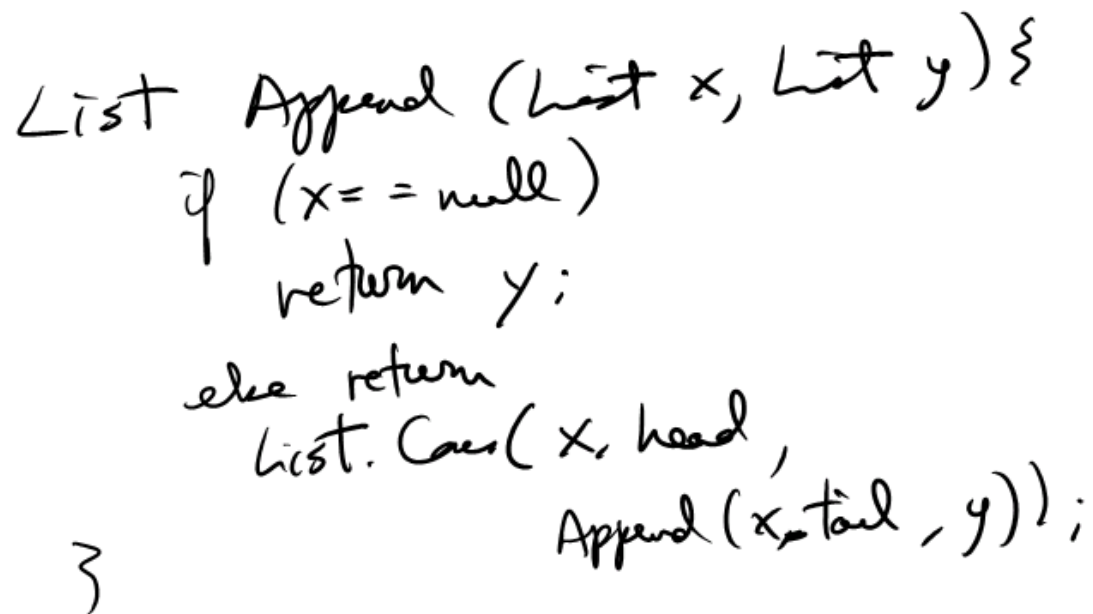 List Append (List x, List y) {
if (x == null)
return y;
else return
List.Cons(x.head,
Append(x.tail, y));
}